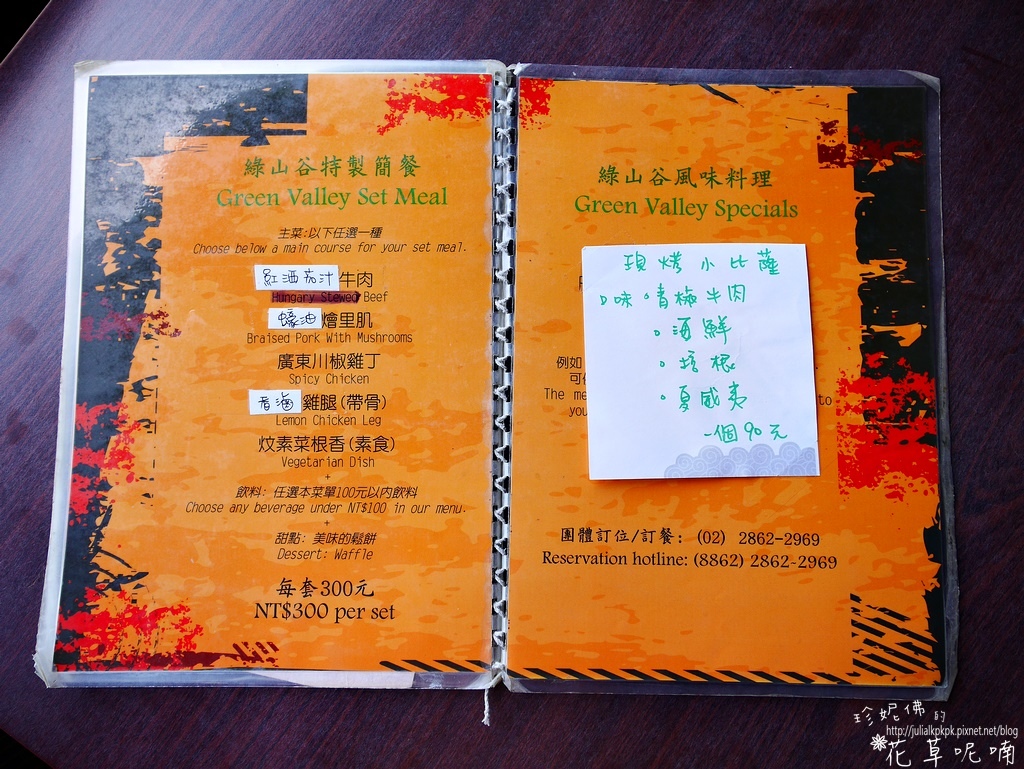 綠山谷特製簡餐
Green Valley Set Meal
主菜:以下任選一種
Choose below a main course for your set meal.
紅酒茄汁牛肉
Hungary Stewed Beef
蠔油燴里肌
Braised Pork With Mushrooms
廣東川椒雞丁
Spicy Chicken
香滷雞腿(帶骨)
Lemon Chicken Leg
炆素菜根香(素食)
Vegetarian Dish
+
飲料: 任選本菜單100元以內飲料
Choose any beverage under NT$100 in our menu.
+
甜點: 美味的鬆餅
Dessert: Waffle
每套300元
NT$300 per set
綠山谷風味料理
Green Valley Specials
現烤小比薩
口味。青椒牛肉
。海鮮
。培根
。夏威夷
一個90元
例如
The me
to
you
團體訂位/訂餐: (02) 2862-2969
Reservation hotline: (8862) 2862-2969
珍妮佛的
http://julialkpkpk.pixnet.net/blog
花草呢喃